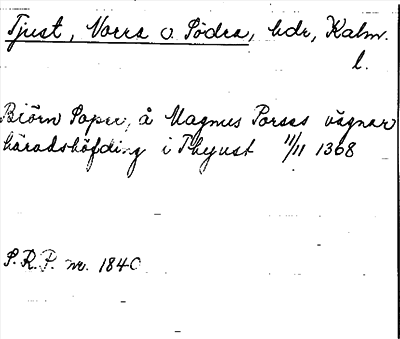 Tjust, Norra o Södra, hdr, Kalm.
l.
Björn Paper, å Magnus Porses vägnar
häradshöfding i Thyust 11/11 1368
S.R.P. nr. 1840